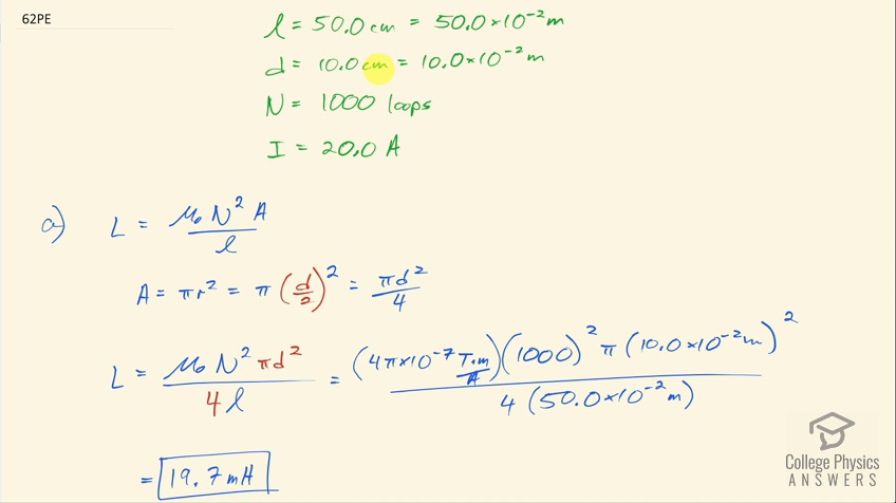 62PE
l = 50.0 cm = 50.0×10⁻² m
d = 10.0 cm = 10.0×10⁻² m
N = 1000 loops
I = 20.0 A
a) L = μ₀ N² A / l
A = πr² = π (d/2)² = πd²/4
L = μ₀ N² πd² / 4 l = (4π×10⁻⁷ T·m/A)(1000)² π (10.0×10⁻² m)² / 4 (50.0×10⁻² m)
= 19.7 mH
College Physics
ANSWERS